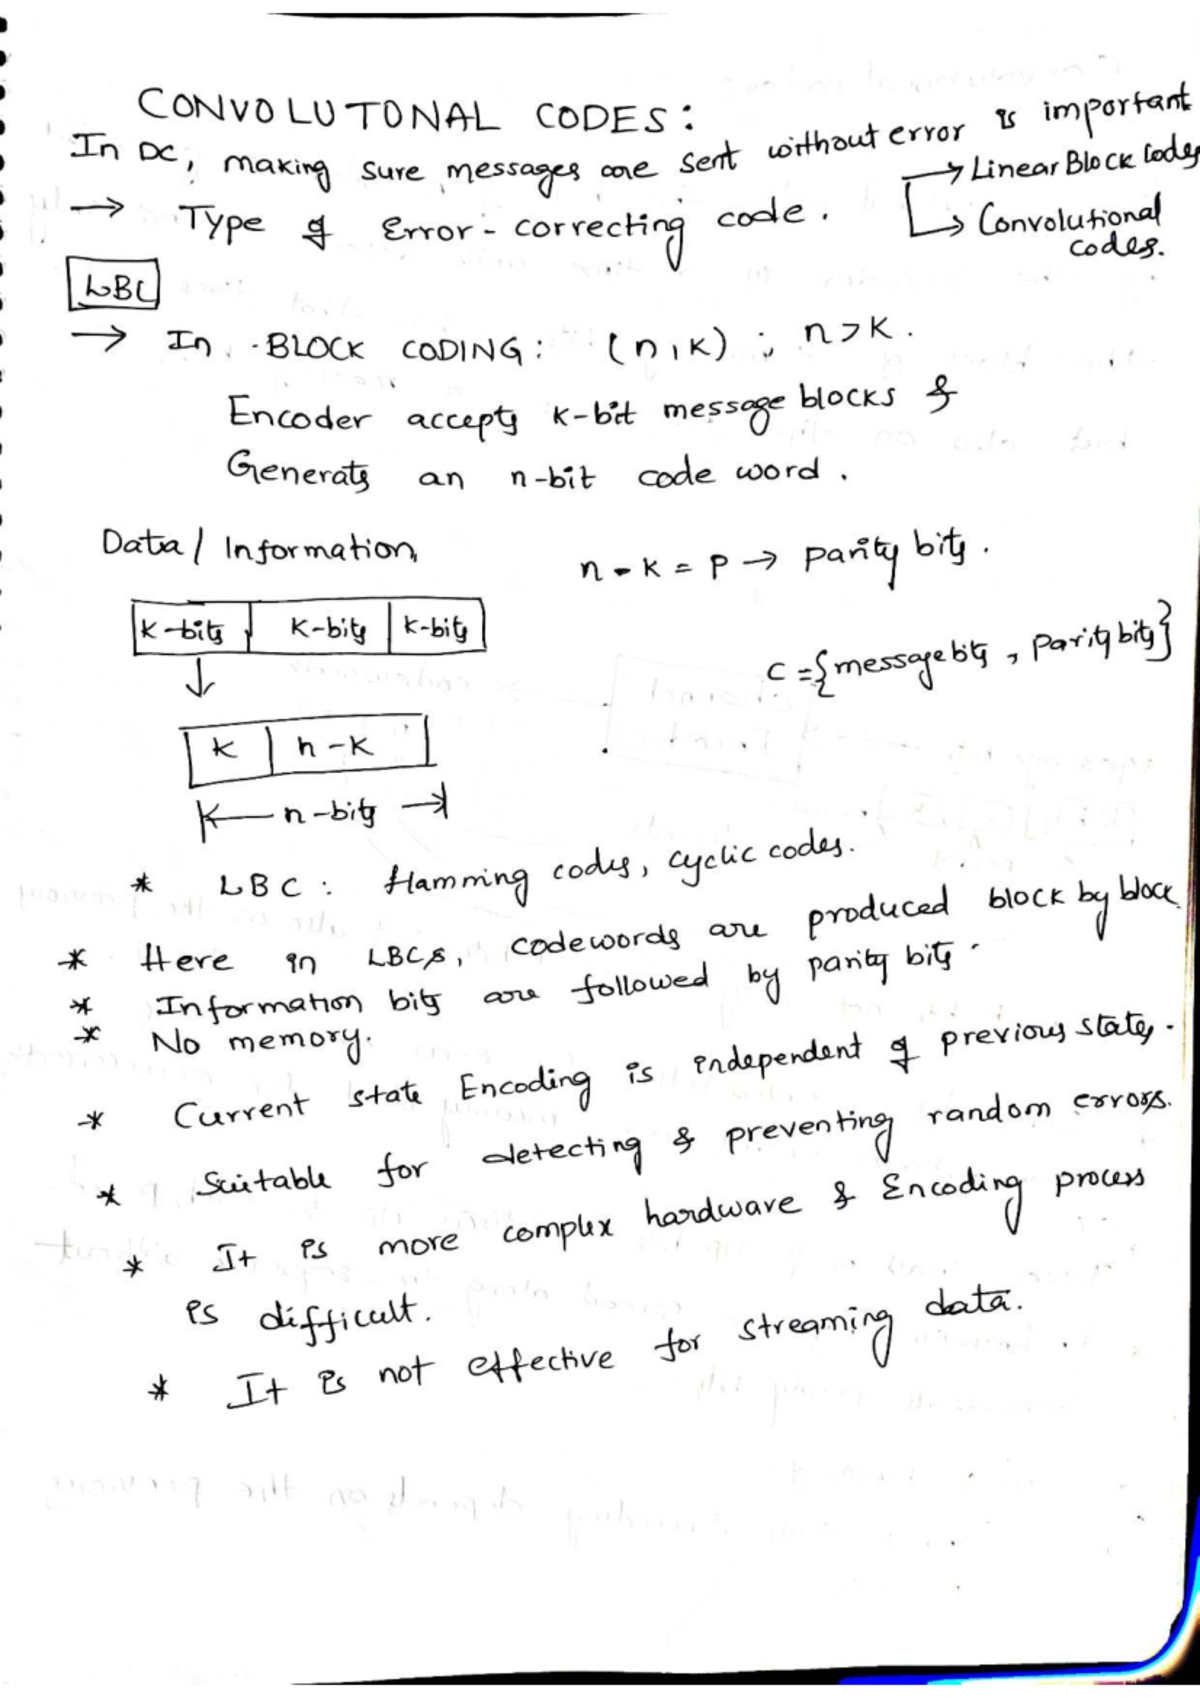 CONVOLUTONAL CODES:
In DC, making sure messages are sent without error is important
→ Type of Error-correcting code. → Linear Block Codes
→ Convolutional codes.
LBC
→ In BLOCK CODING: (n,k); n>k.
Encoder accepts k-bit message blocks &
Generats an n-bit code word.
Data/Information
n-k = p → parity bits.
k-bits k-bits k-bits
c = {message bits, parity bits}
k n-k
n-bits
* LBC: Hamming codes, cyclic codes.
* Here in LBCs, codewords are produced block by block
* Information bits are followed by parity bits.
* No memory.
* Current state Encoding is independent of previous states.
* Suitable for detecting & preventing random errors.
* It is more complex hardware & Encoding process
is difficult.
* It is not effective for streaming data.